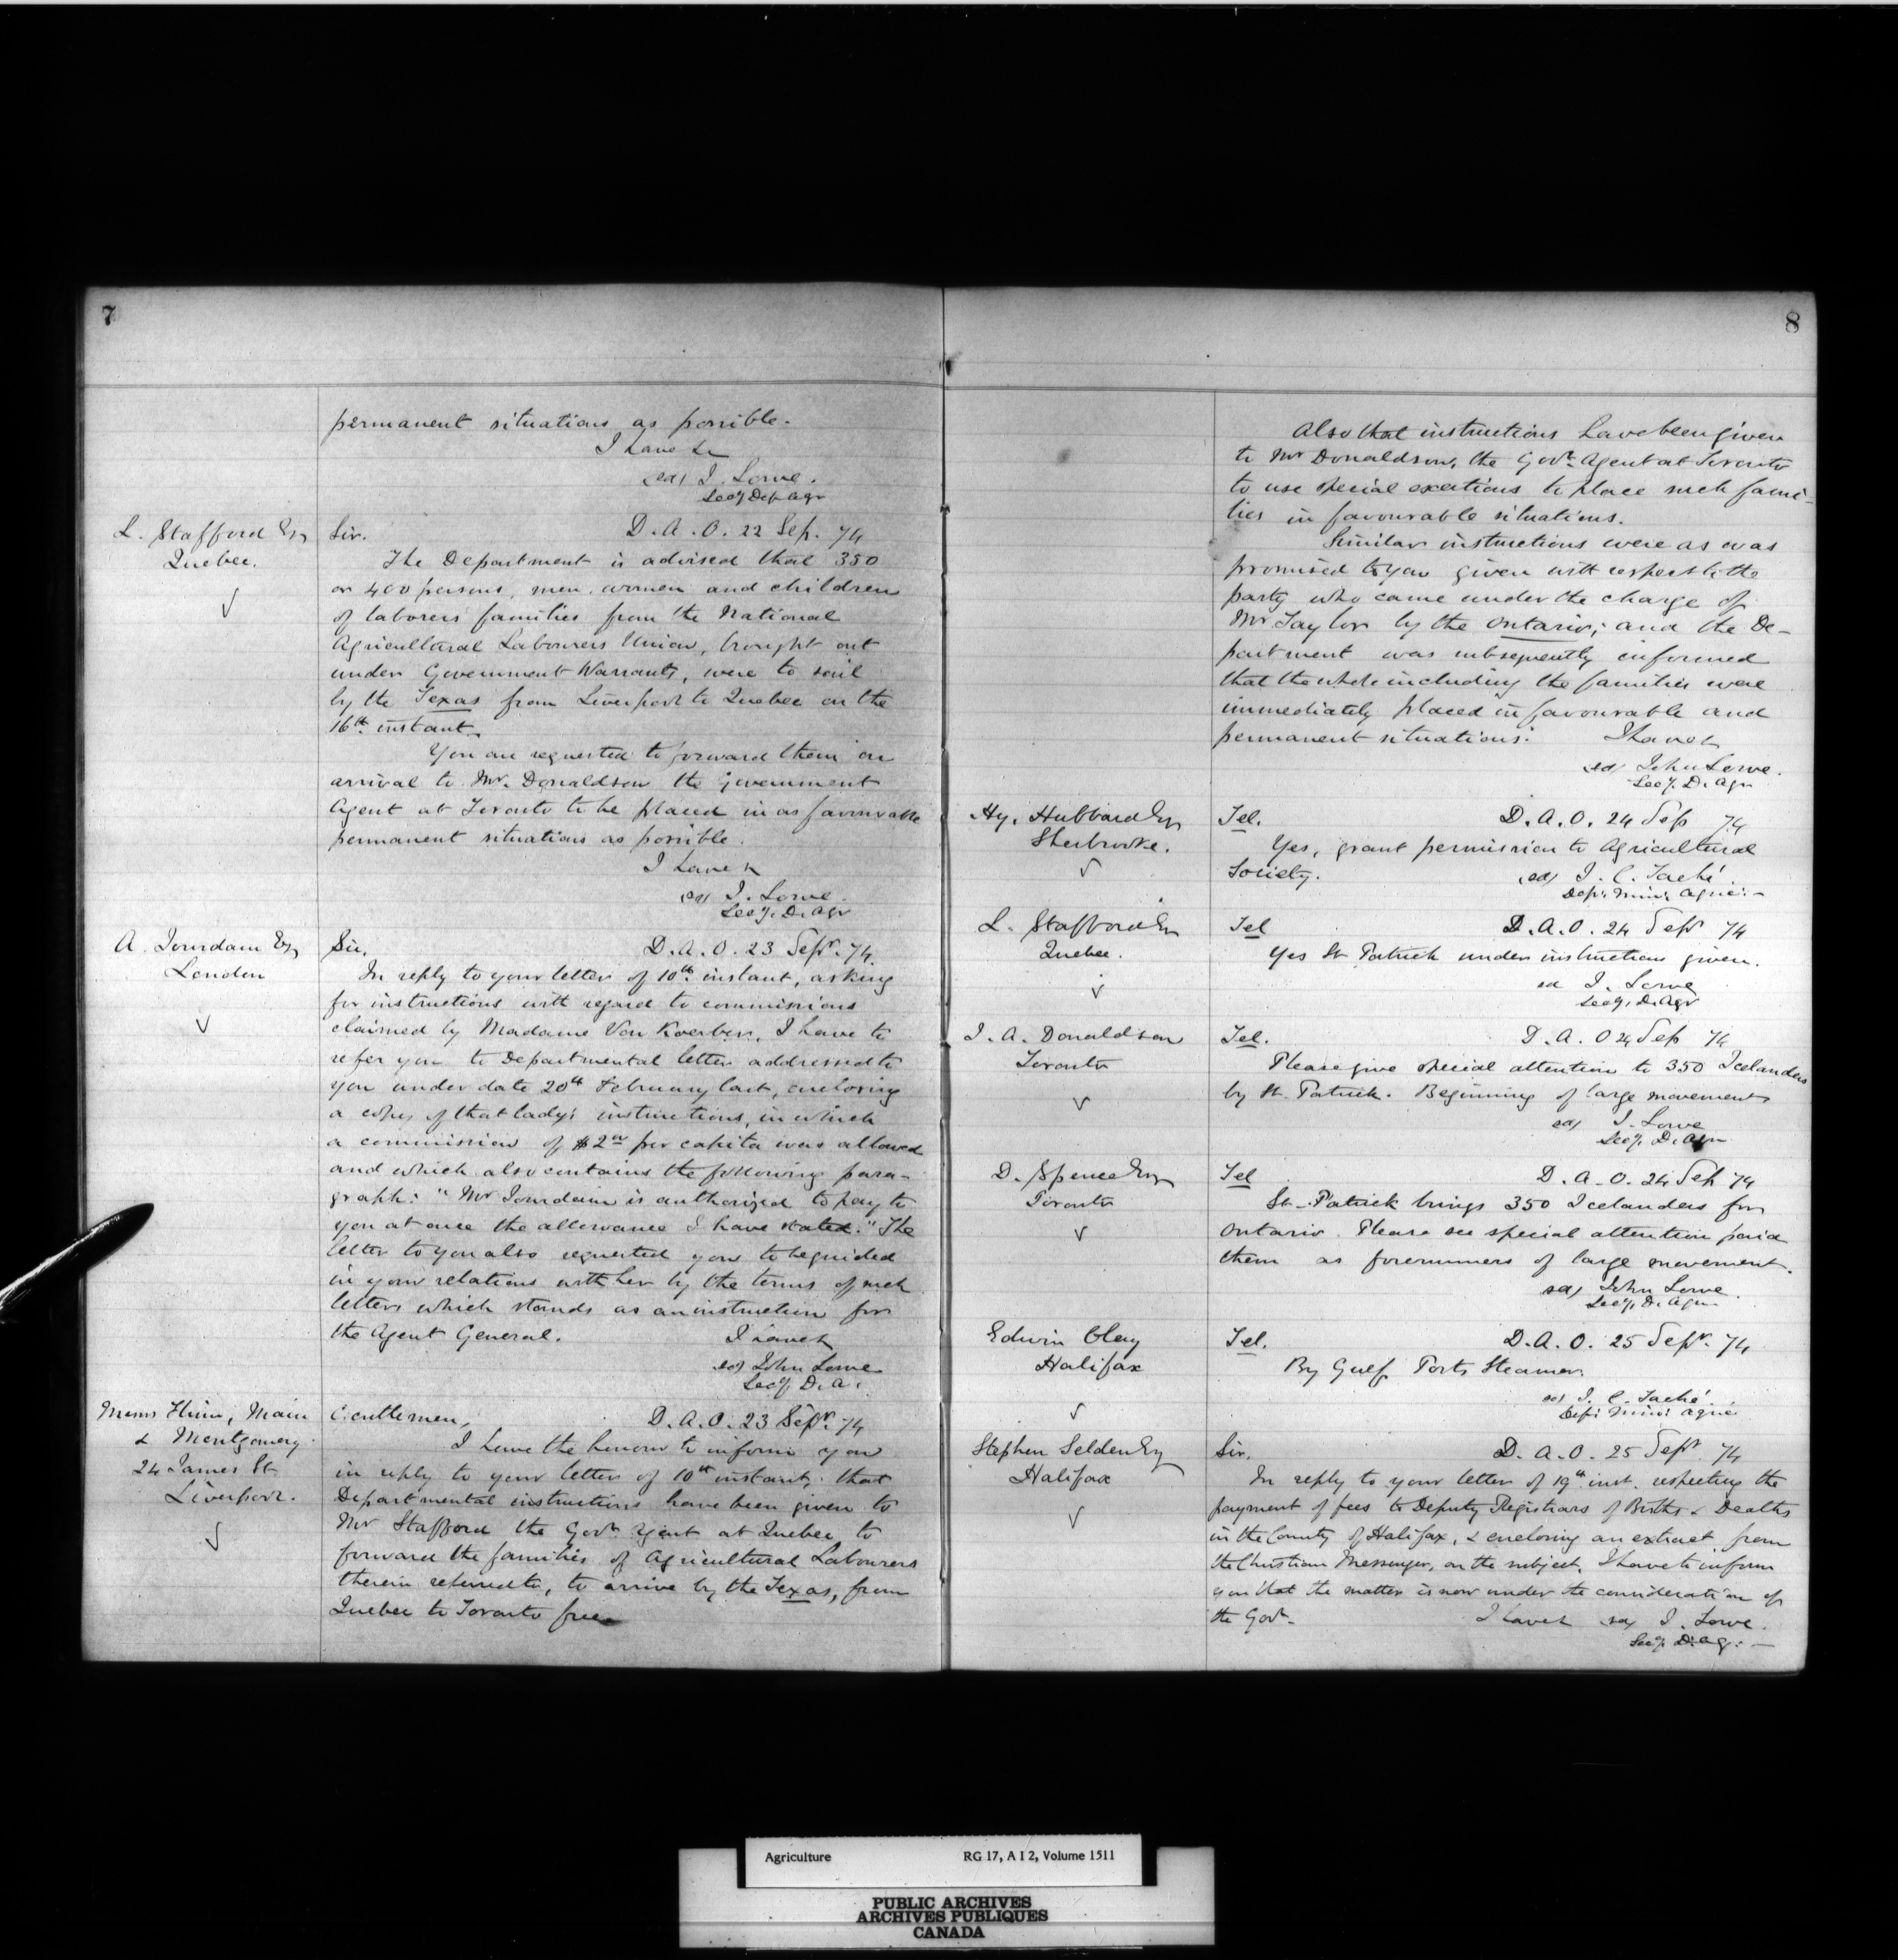 7
permanent situations as possible.
I have &c
(sd) J. Lowe.
Secy Dep Agr
L. Stafford Esq
Quebec.
Sir.
D. A. O. 22 Sep. 74
The Department is advised that 350
or 400 persons, men, women and children
of laborers families from the National
Agricultural Labourers Union, brought out
under Government Warrants, were to sail
by the Texas from Liverpool to Quebec on the
16th instant.
You are requested to forward them on
arrival to Mr. Donaldson the Government
Agent at Toronto to be placed in as favourable
permanent situations as possible.
I have &
(sd) J. Lowe
Secy. D. Agr
A. Jourdain Esq
London
Sir,
D. A. O. 23 Sepr. 74.
In reply to your letter of 10th instant, asking
for instructions with regard to commissions
claimed by Madame Von Koerber, I have to
refer you to Departmental letter addressed to
you under date 20th February last, enclosing
a copy of that lady's instructions, in which
a commission of $2 00 per capita was allowed
and which also contains the following para-
graph: "Mr Jourdain is authorized to pay to
you at once the allowance I have stated." The
letter to you also requested you to be guided
in your relations with her by the terms of such
letters which stands as an instruction for
the Agent General.
I have &
(sd) John Lowe
Secy. D. A.
Messrs Flinn, Main
& Montgomery
24 James St
Liverpool.
Gentlemen,
D. A. O. 23 Sepr. 74
I have the honour to inform you
in reply to your letter of 10th instant, that
Departmental instructions have been given to
Mr Stafford the Govt. Agent at Quebec to
forward the families of Agricultural Labourers
therein referred to, to arrive by the Texas, from
Quebec to Toronto free
8
Also that instructions have been given
to Mr Donaldson, the Govt. Agent at Toronto
to use special exertions to place such fami-
lies in favourable situations.
Similar instructions were as was
promised to you given with respect to the
party who came under the charge of
Mr Taylor by the Ontario; and the De-
partment was subsequently informed
that the whole including the families were
immediately placed in favourable and
permanent situations.
I have &
(sd) John Lowe.
Secy. D. Agr
Hy. Hubbard Esq
Sherbrooke.
Tel.
D. A. O. 24 Sep 74
Yes, grant permission to Agricultural
Society.
(sd) J. C. Taché
Dep: Min: Agric: -
L. Stafford Esq
Quebec.
Tel
D. A. O. 24 Sepr 74
Yes St Patrick under instructions given.
sd J. Lowe
Secy. D. Agr
J. A. Donaldson
Toronto
Tel.
D. A. O 24 Sep 74
Please give special attention to 350 Icelanders
by St. Patrick. Beginning of large movement
sd) J. Lowe
Secy. D. Agr
D. Spence Esq
Toronto
Tel
D. A. O. 24 Sep 74
St. Patrick brings 350 Icelanders for
Ontario. Please see special attention paid
them as forerunners of large movement.
sd) John Lowe.
Secy. D. Agr
Edwin Clay
Halifax
Tel.
D. A. O. 25 Sepr. 74
By Gulf Ports Steamer.
sd) J. C. Taché
Dep: Min: Agric
Stephen Selden Esq
Halifax
Sir.
D. A. O. 25 Sepr 74
In reply to your letter of 19th inst. respecting the
payment of fees to Deputy Registrars of Births & Deaths
in the County of Halifax, & enclosing an extract from
the Christian Messenger, on the subject, I have to inform
you that the matter is now under the consideration of
the Govt.
I have & sd) J. Lowe.
Secy. D. Ag: -
Agriculture
RG 17, A I 2, Volume 1511
PUBLIC ARCHIVES
ARCHIVES PUBLIQUES
CANADA